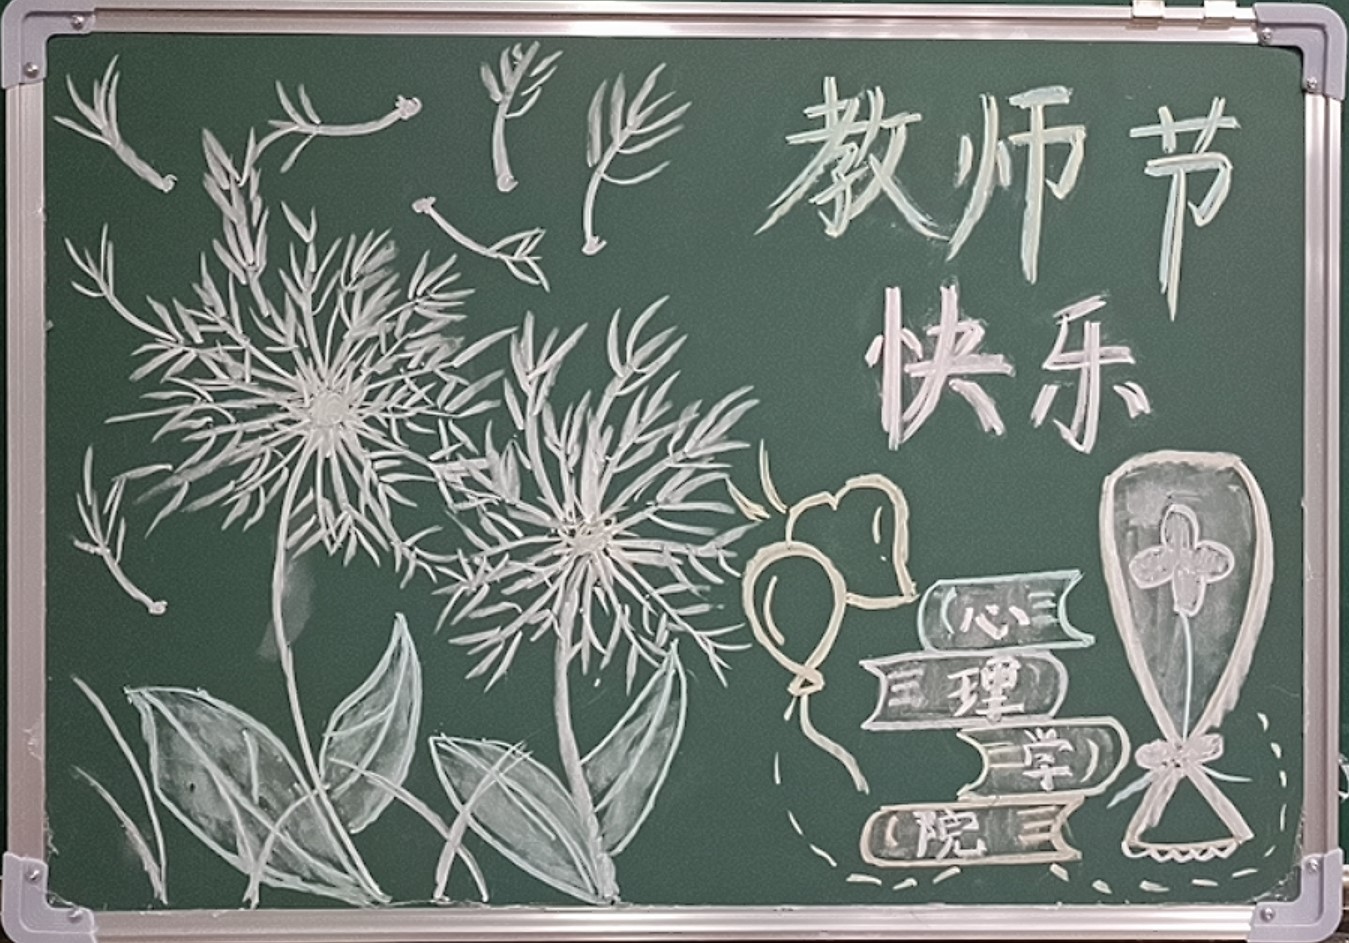 教师节
快乐
心
理
学
院